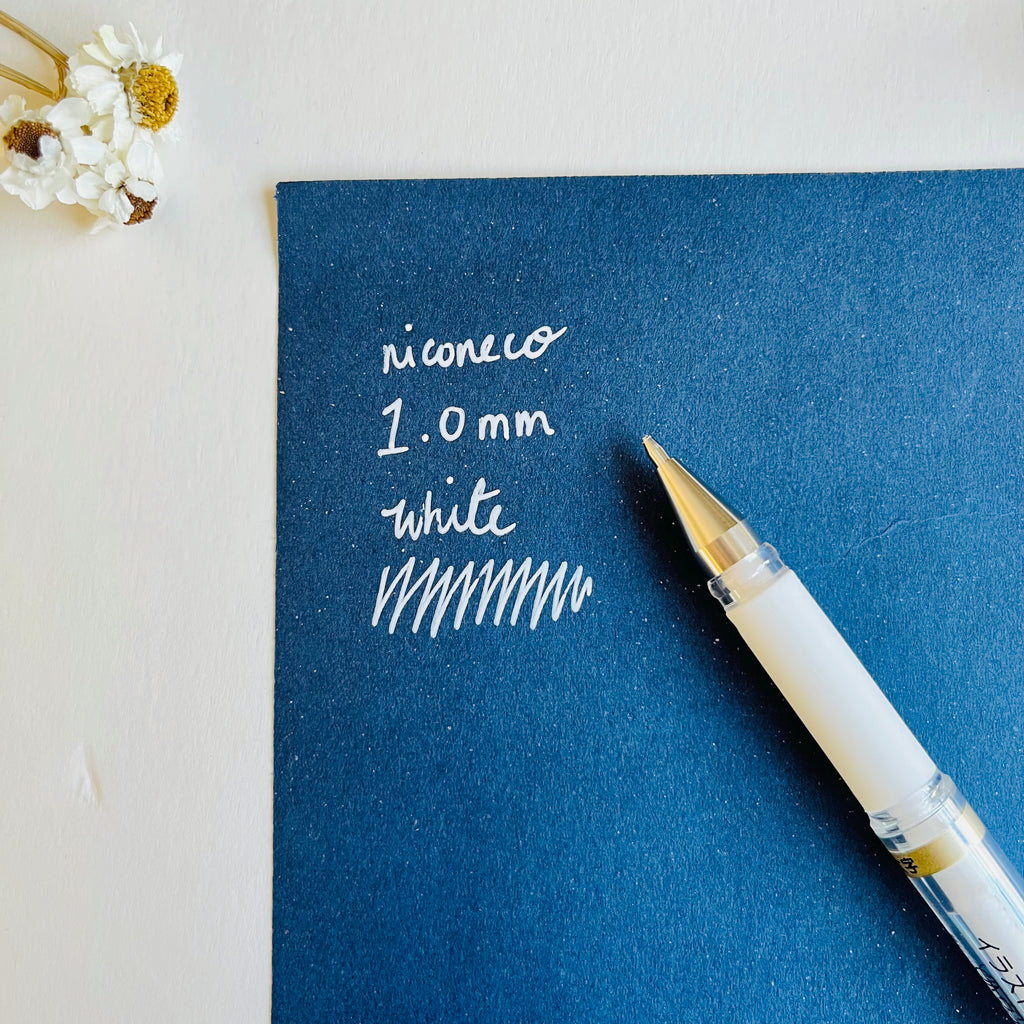 niconeco
1.0mm
white
イラスト